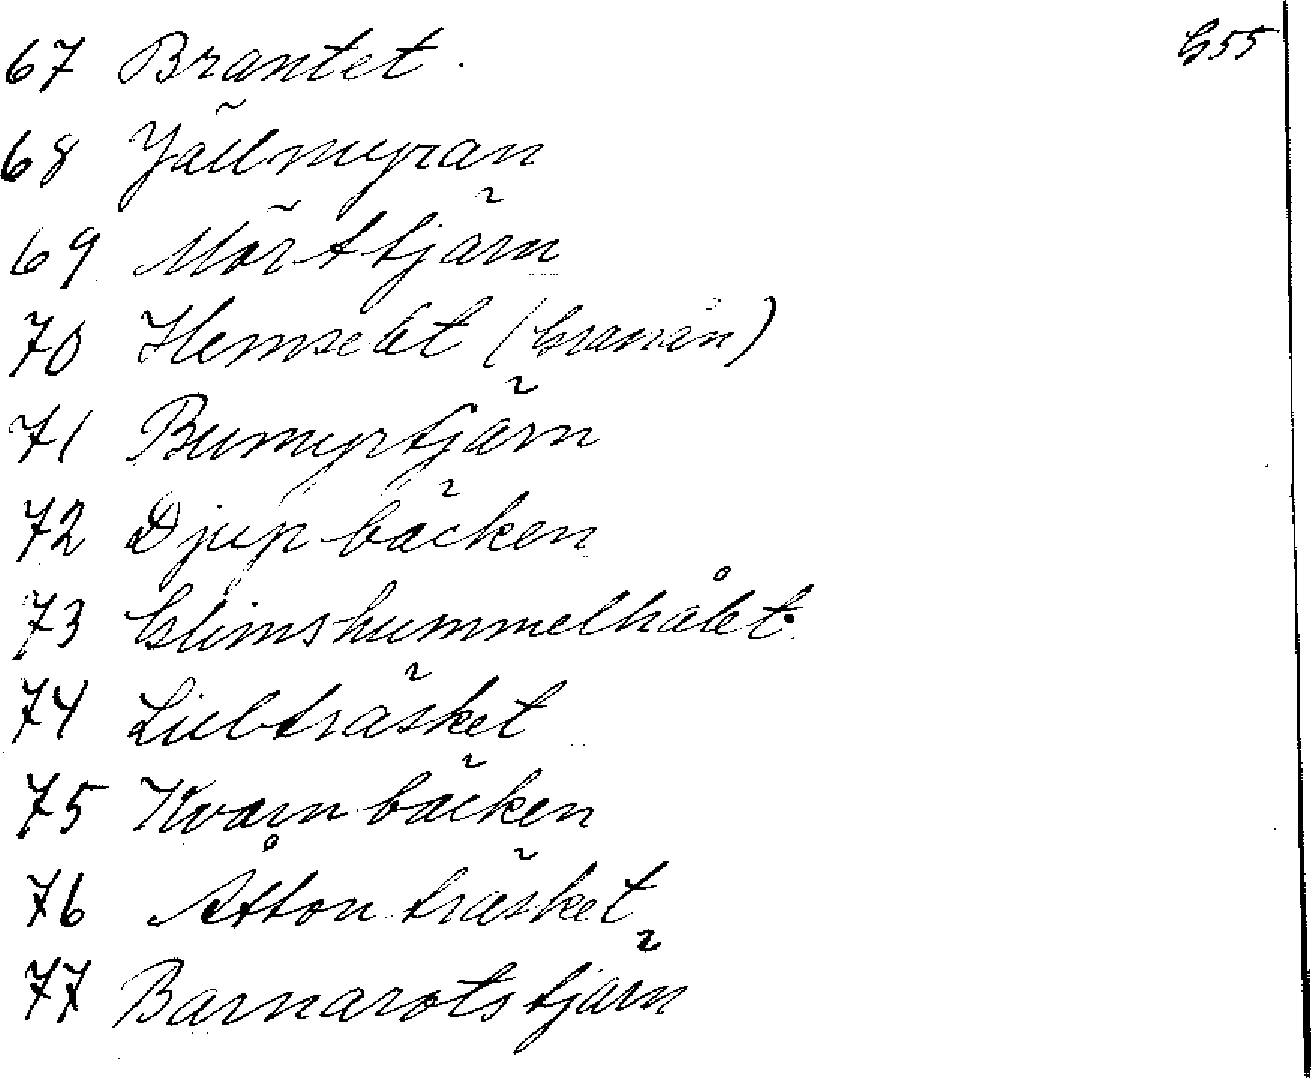 67 Brantet. G55
68 Jällmyran
69 Mörttjärn
70 Hemselet (Granån)
71 Bumyrtjärn
72 Djupbäcken
73 Glimshummelhålet.
74 träsket
75 Kvarnbäcken
76 Åttonträsket
77 Barnarotstjärn